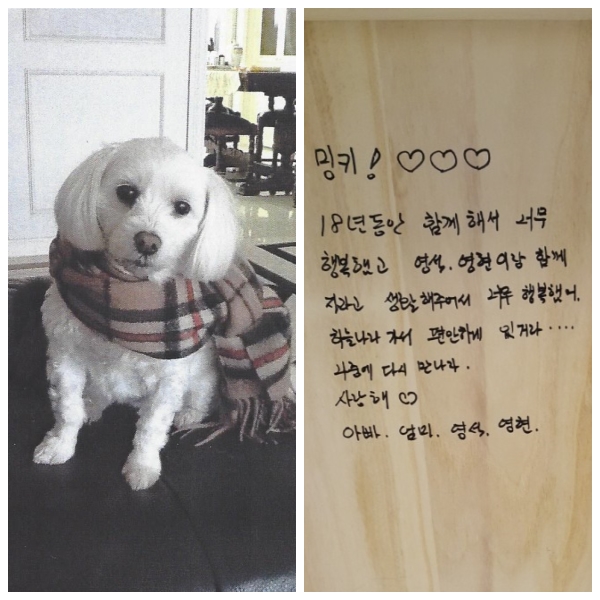 밍키! ♡♡♡
18년동안 함께 해서 너무
행복했고 영석. 영현이랑 함께
자라고 생활해주어서 너무 행복했어.
하늘나라 가서 편안하게 있거라....
나중에 다시 만나자.
사랑해 ♡
아빠. 엄마. 영석. 영현.